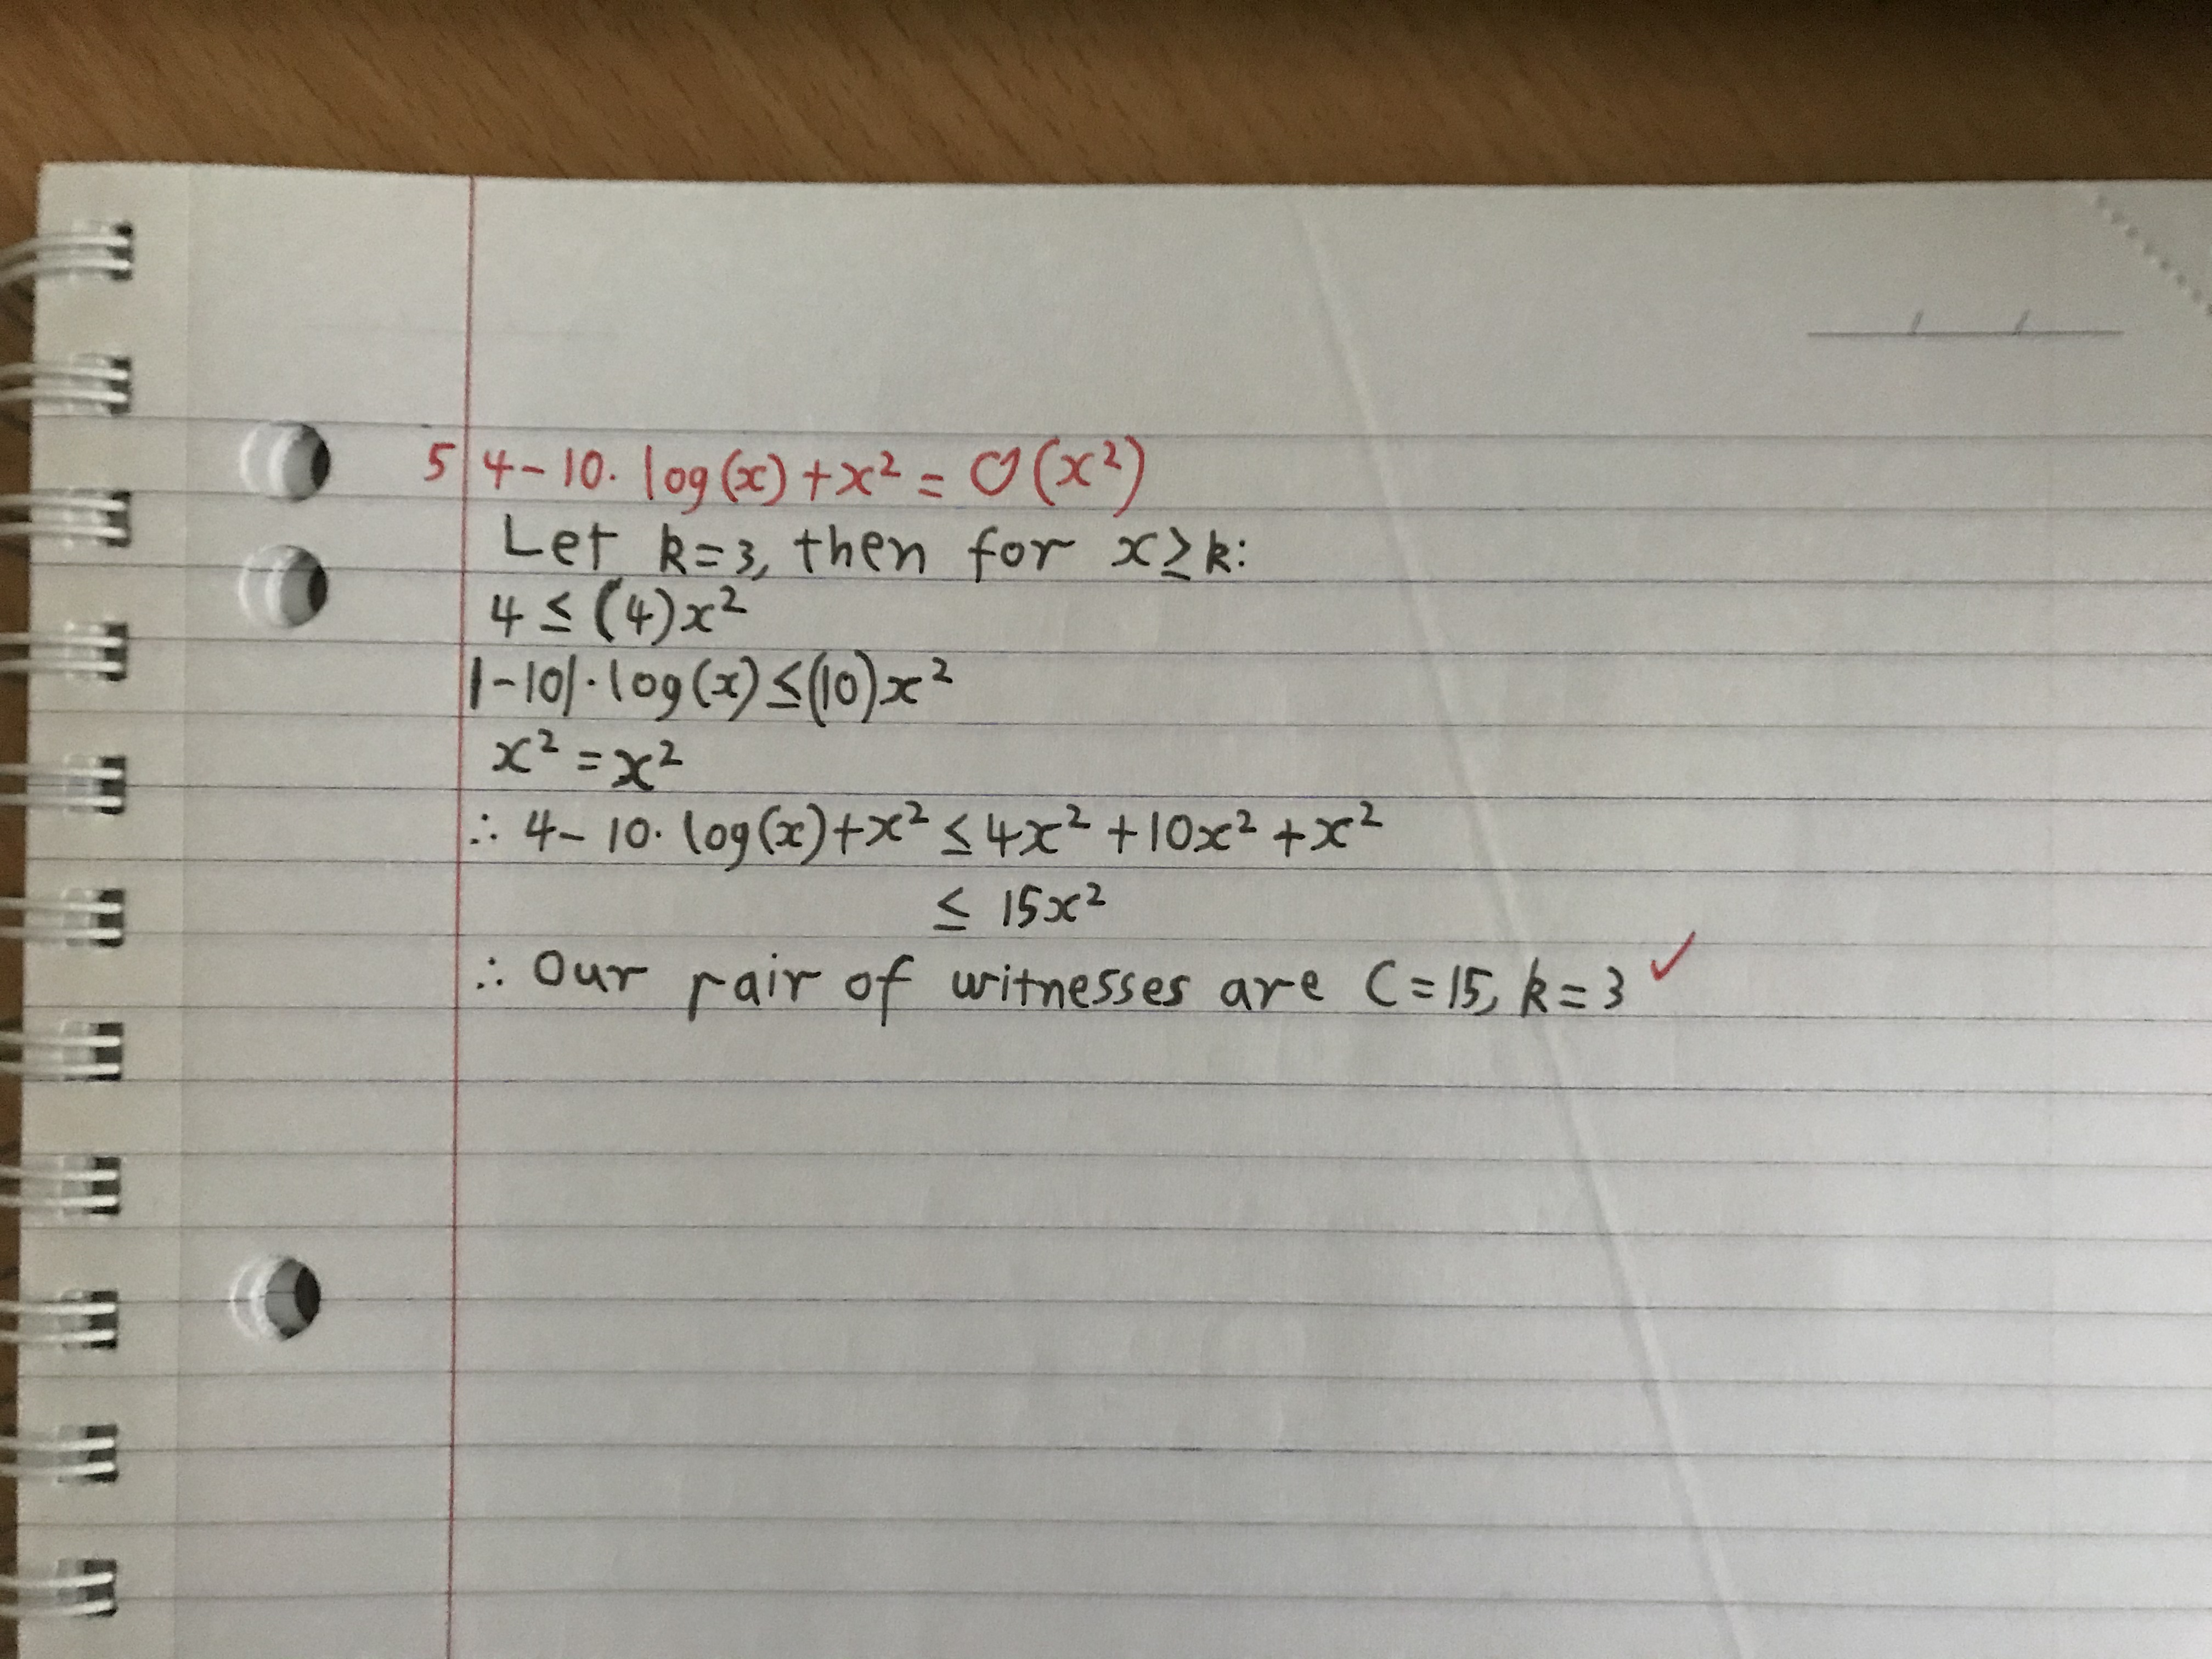 5 4-10. log(x)+x² = O(x²)
Let k=3, then for x≥k:
4 ≤ (4)x²
|-10|·log(x)≤(10)x²
x² = x²
∴ 4-10. log(x)+x² ≤ 4x² +10x² +x²
≤ 15x²
∴ Our pair of witnesses are C=15, k=3 ✓